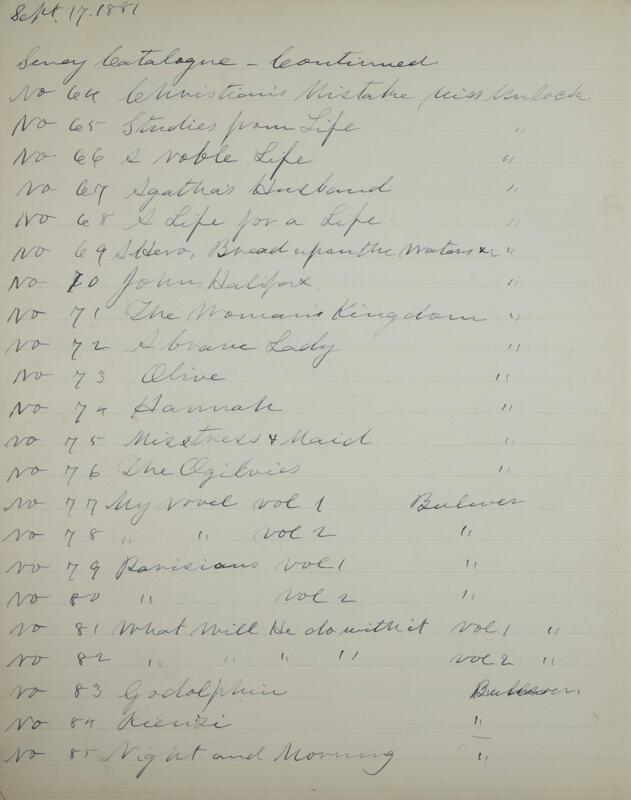 Sept. 17. 1881
Seney Catalogue - Continued
No 64 Christian's Mistake, Miss Mulock
No 65 Studies from Life "
No 66 A Noble Life "
No 67 Agatha's Husband "
No 68 A Life for a Life "
No 69 A Hero, Bread upon the Waters &c "
No 70 John Halifax "
No 71 The Woman's Kingdom "
No 72 A brave Lady "
No 73 Olive "
No 74 Hannah "
No 75 Misstress & Maid "
No 76 The Ogilvies "
No 77 My Novel vol 1 Bulwer
No 78 " " vol 2 "
No 79 Parisians vol 1 "
No 80 " vol 2 "
No 81 What Will He do with it vol 1 "
No 82 " " " " vol 2 "
No 83 Godolphin Bulwer.
No 84 Rienzi "
No 85 Night and Morning "